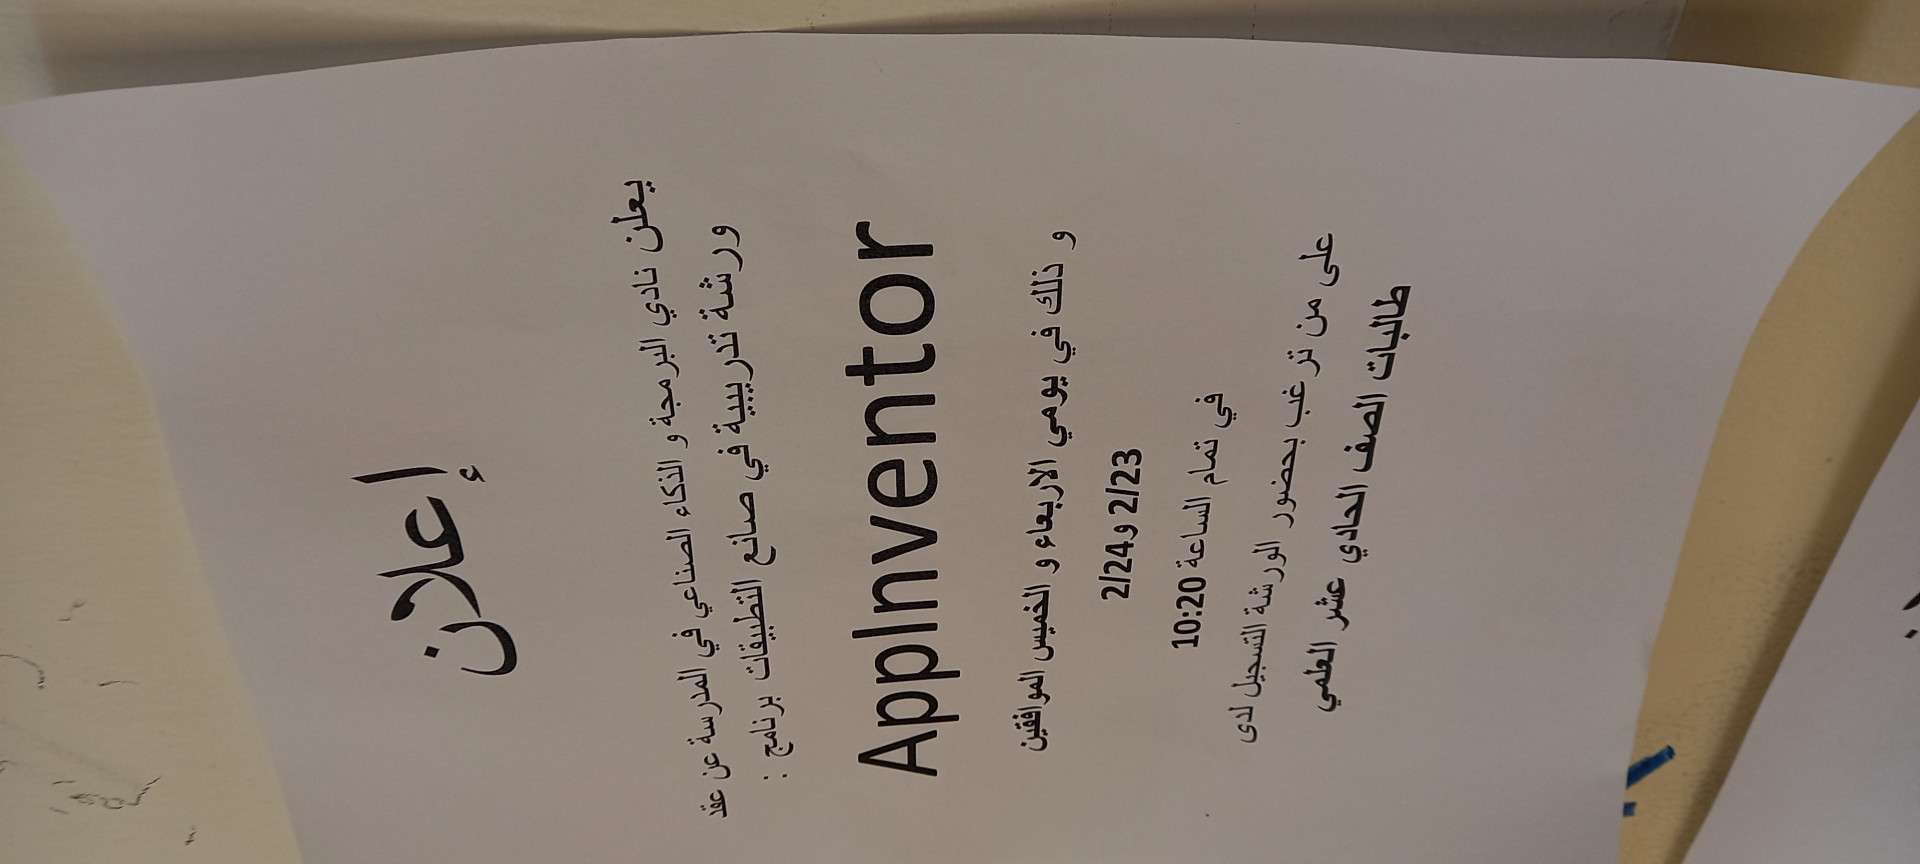 إعلان
يعلن نادي البرمجة و الذكاء الصناعي في المدرسة عن عقد
ورشة تدريبية في صانع التطبيقات برنامج :
AppInventor
و ذلك في يومي الاربعاء و الخميس الموافقين
2/23 و2/24
في تمام الساعة 10:20
على من ترغب بحضور الورشة التسجيل لدى
طالبات الصف الحادي عشر العلمي